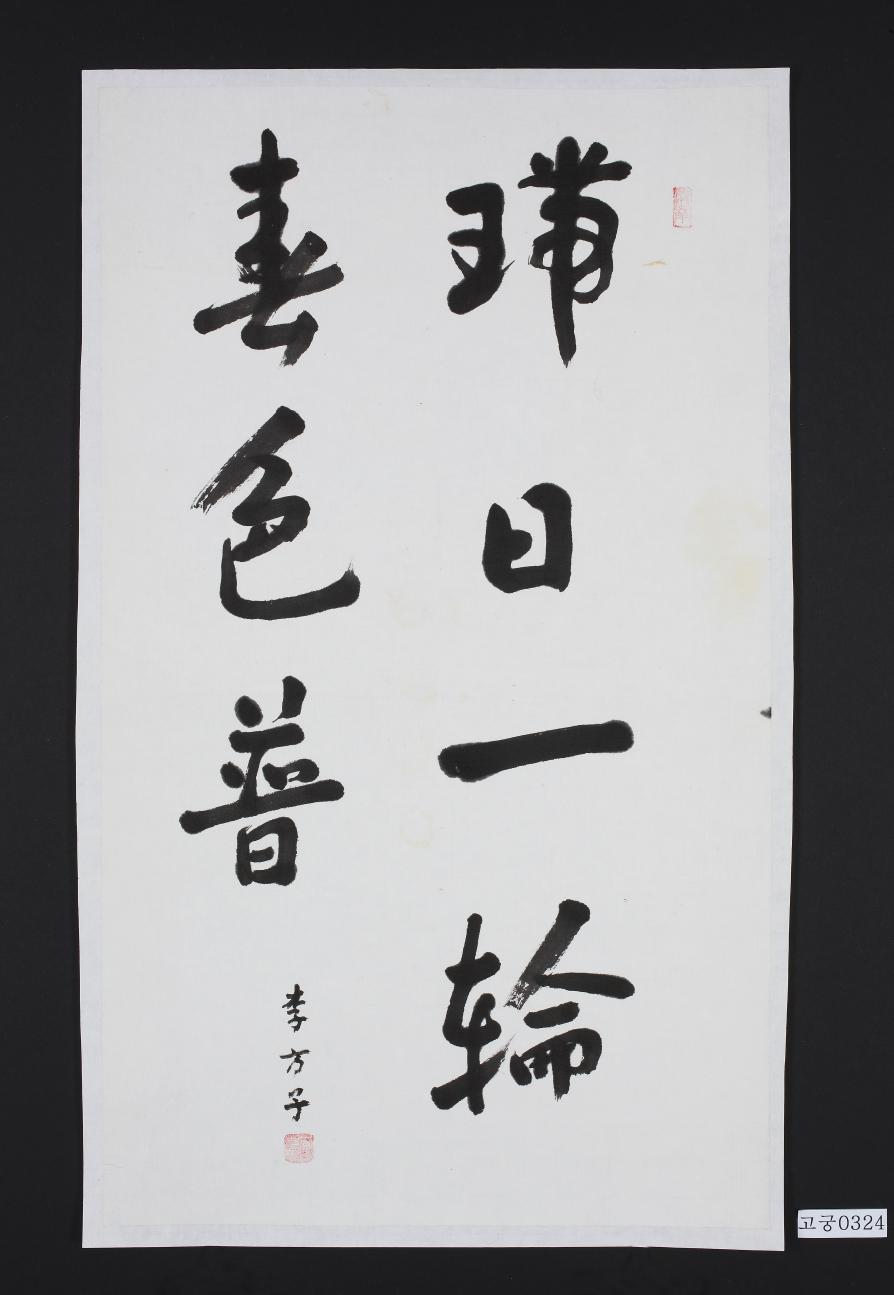 瑞日一輪
春色普
李方子
고궁0324